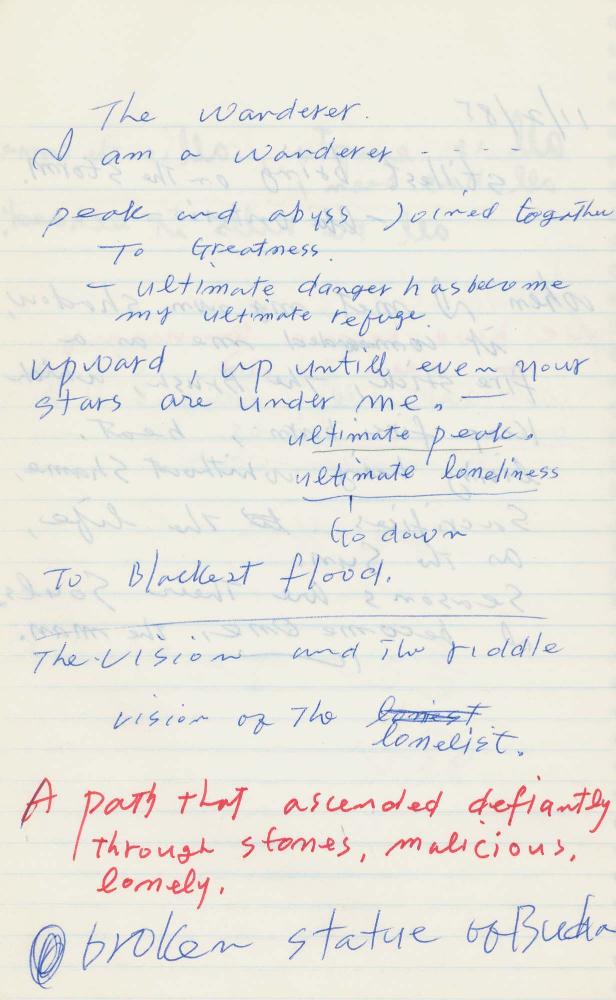 The Wanderer.
I am a wanderer - - - -
peak and abyss - joined together
To Greatness.
- ultimate danger has become
my ultimate refuge.
upward, up untill even your
stars are under me. —
ultimate peak.
ultimate loneliness
Go down
To Blackest flood.
The vision and The riddle
vision of The loniest
lonelist.
A path that ascended defiantly
through stones, malicious,
lonely.
broken statue of Budda